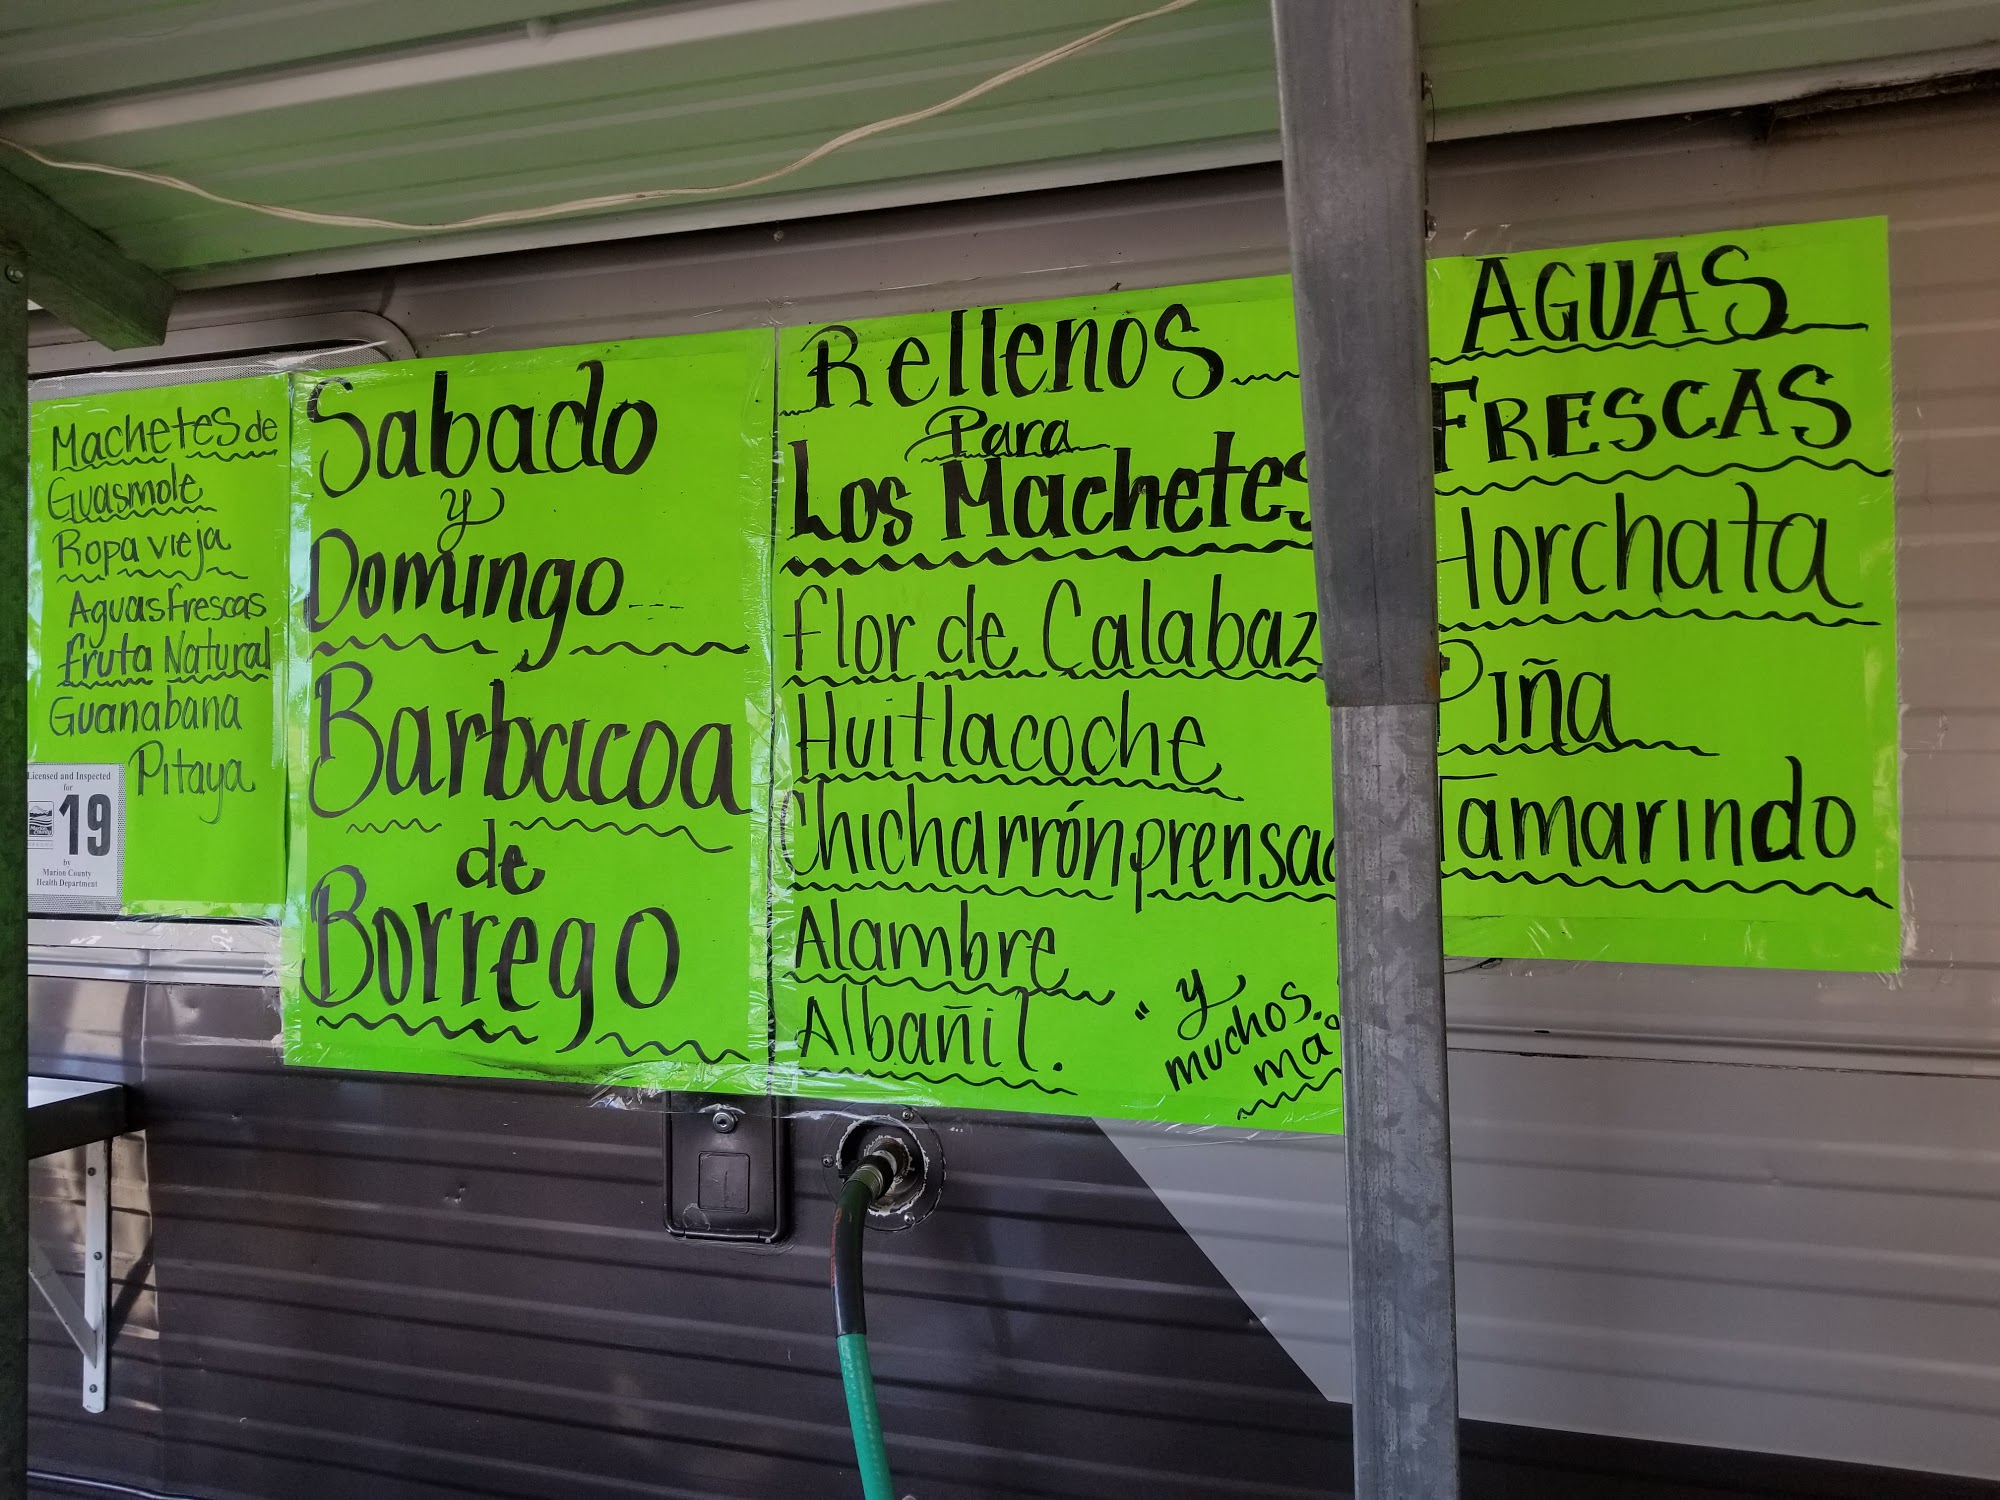 Machetes de
Guasmole
Ropa vieja
Aguas frescas
fruta Natural
Guanabana
Pitaya
Licensed and Inspected
for
19
by
Marion County
Health Department
Sabado
y
Domingo
Barbacoa
de
Borrego
Rellenos
Para
Los Machetes
flor de Calabaz
Huitlacoche
Chicharrón prensad
Alambre
Albañil.
"y
muchos.
má
AGUAS
FRESCAS
Horchata
Piña
Tamarindo